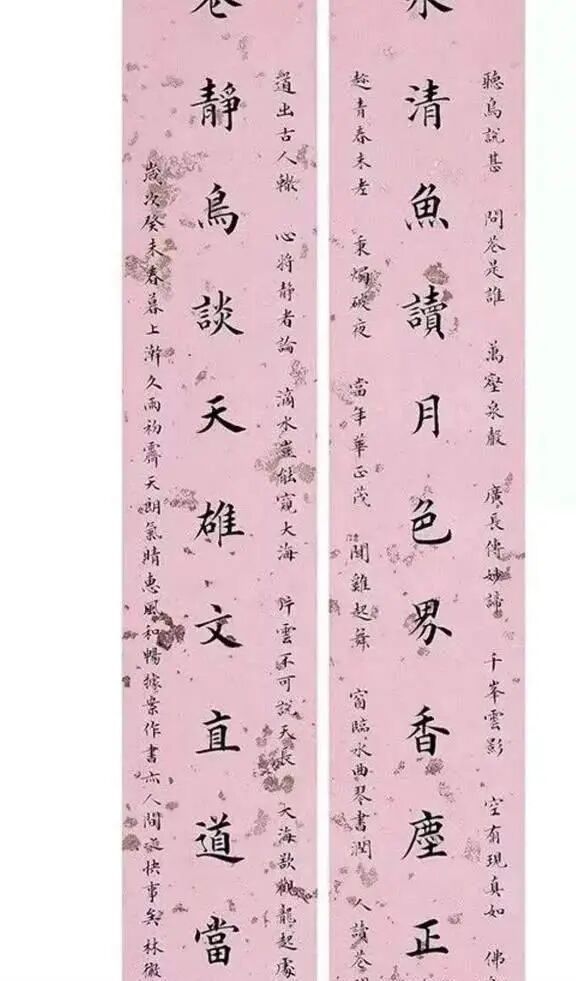 聽鳥說甚 問花是誰 萬壑泉聲 廣長傳妙諦 千峯雲影 空有現真如 佛
清魚讀月色界香塵正
趁青春未老 秉燭破夜 當年華正茂 聞雞起舞 窗臨水曲琴書潤 人讀花
道出古人轍 心將靜者論 滴水豈能窺大海 片雲不可說天長 大海欲觀龍起處
靜鳥談天雄文直道當
歲次癸未春暮上澣久雨初霽天朗氣晴惠風和暢據案作書亦人間之快事矣 林